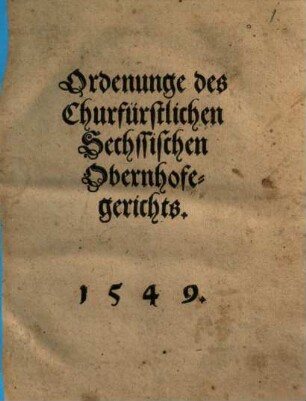 Ordenunge des
Churfürstlichen
Sechssischen
Obernhofe-
gerichts.
1549.